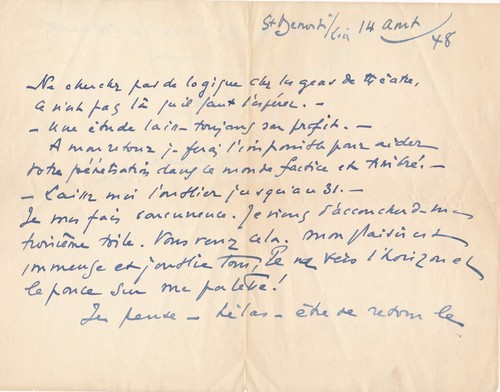 St Benoit/Loir 14 Aout
48
Ne cherchez pas de logique chez les gens de théatre,
ce n'est pas là qu'il faut l'espérer. —
— Une étude laisse toujours son profit. —
A mon retour je ferai l'impossible pour aider
votre pénétration dans le monde factice et timbré. —
— Laissez moi l'oublier jusqu'au 31. —
Je me fais concurrence. Je viens d'accoucher de ma
troisième toile. Vous verrez cela. mon plaisir est
immense et j'oublie tout, le nez vers l'horizon et
le pouce sur ma palette!
Je pense — hélas — être de retour le